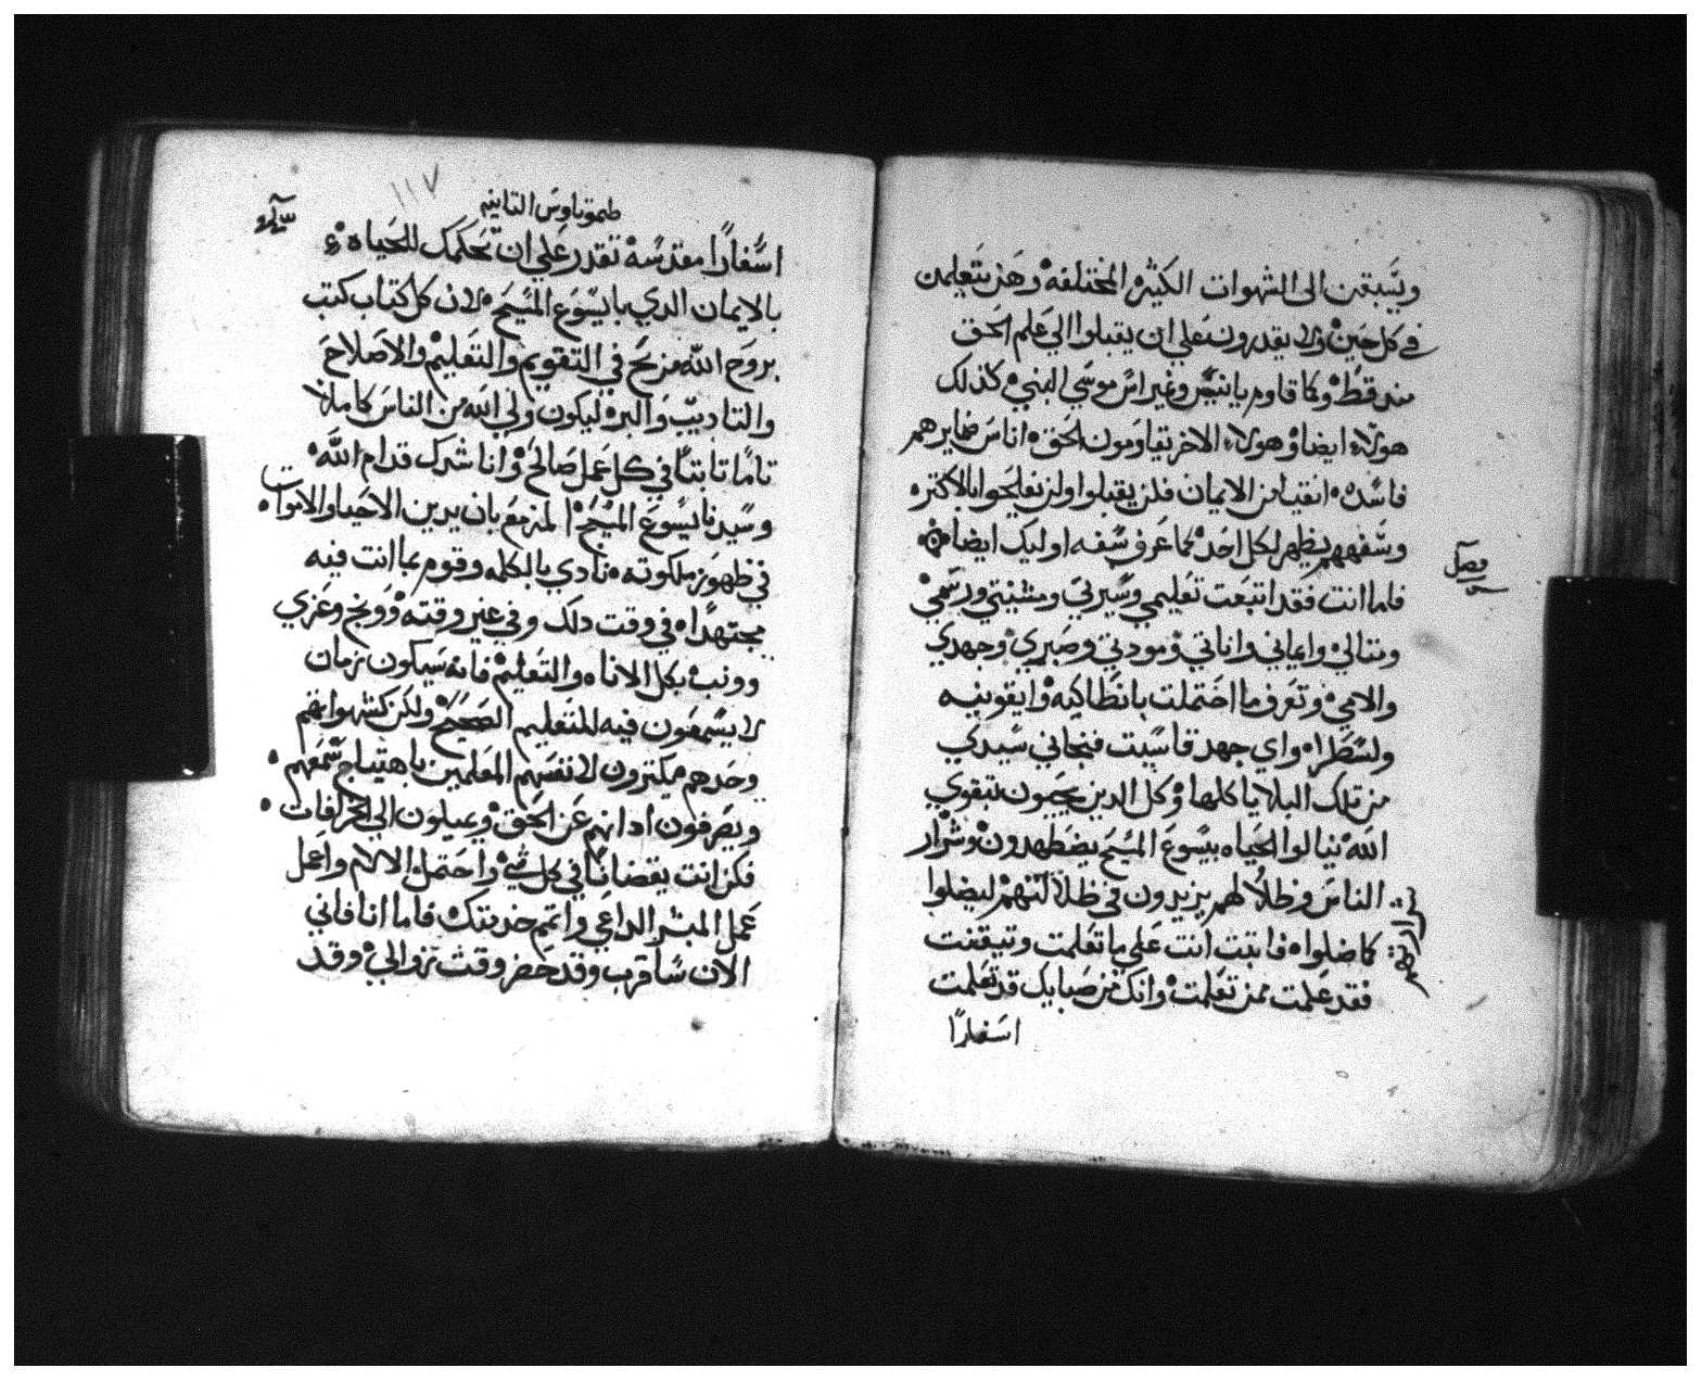 ويسبقن الى الشهوات الكثيره المختلفه وهن يتعلمن
في كل حين ولا يقدرون علي ان يقبلوا الي علم الحق
منذ قط وكما قاوم يانيس وغيراس موسي النبي كذلك
هولاء ايضا وهولاء الاخر يقاومون الحق اناس ضمايرهم
فاسده انقيا من الايمان فلن يقبلوا ولن يفلحوا بالاكثره
وسفههم يظهر لكل احد كما عرف سفه اوليك ايضا
فصل
فاما انت فقد اتبعت تعليمي وسيرتي ومشيتي ورسمي
ومثالي وايماني واناتي ومودتي وصبري وجهدي
والامي وتعرف ما احتملت بانطاكيه وايقونيه
ولسطرا واي جهد قاسيت فنجاني سيدي
من تلك البلايا كلها وكل الدين يحبون بتقوي
الله ينالوا الحياه بيسوع المسيح يضطهدون وشرار
الناس وظلالهم يزيدون في ظلالتهم ليضلوا
كما ضلوا فاتبت انت علي ما تعلمت وتيقنت
فقد علمت ممن تعلمت وانك من صبايك قد تعلمت
اسفارا
١١٧
طيموتاوس التانيه
اسفارا مقدسه تقدر علي ان تحكمك للحياه
بالايمان الدي بايسوع المسيح لان كل كتاب كتب
بروح الله مربح في التقويم والتعليم والاصلاح
والتاديب والبره ليكون ولي الله من الناس كاملا
تاما تابتا في كل عمل صالح وانا شدك قدام الله
وسيدنا يسوع المسيح المزمع بان يدين الاحيا والاموات
في ظهور ملكوته نادي بالكلمه وقوم بما انت فيه
مجتهدا في وقت دلك وفي غير وقته ووبخ وعزي
وونب بكل الاناه والتعليم فانه سيكون زمان
لا يسمعون فيه للتعليم الصحيح ولكن كشهواتهم
وحدهم ميكترون لانفسهم المعلمين باهتياج سمعهم
ويصرفون ادانهم عن الحق ويميلون الي الخرافات
فكن انت يقضانا في كل شي واحتمل الالام واعمل
عمل المبشر الداعي واتمم خدمتك فاما انا فاني
الان ساقرب وقد حضر وقت زوالي وقد